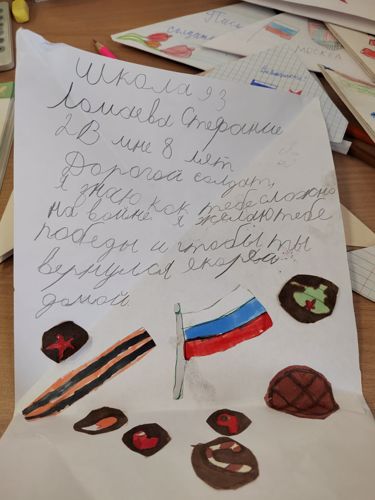 Пись
солдату
МОСКВА
Школа 93
Ломаева Стефание
2В мне 8 лят
Дорогой солдат,
я знаю как тебе сложно
на войне я желаю тебе
победы и чтобы ты
вернулся скорей
домой